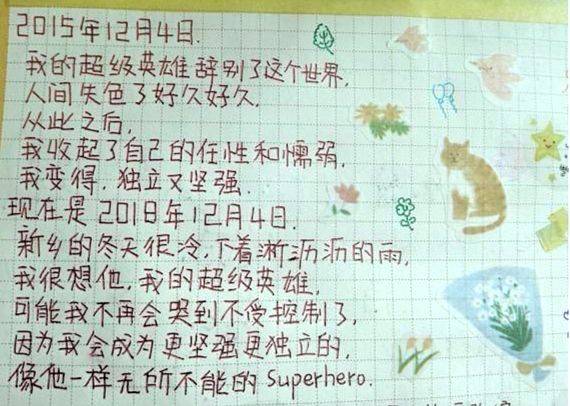 2015年12月4日.
我的超级英雄辞别了这个世界,
人间失色了好久好久.
从此之后,
我收起了自己的任性和懦弱,
我变得,独立又坚强.
现在是2018年12月4日.
新乡的冬天很冷,下着淅沥沥的雨,
我很想他,我的超级英雄,
可能我不再会哭到不受控制了,
因为我会成为更坚强更独立的,
像他一样无所不能的Superhero.